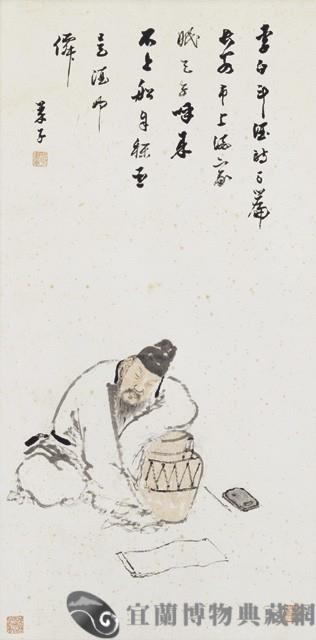 李白斗酒詩百篇
長安市上酒家
眠天子呼來
不上船自稱臣
是酒中
僊
宜蘭博物典藏網